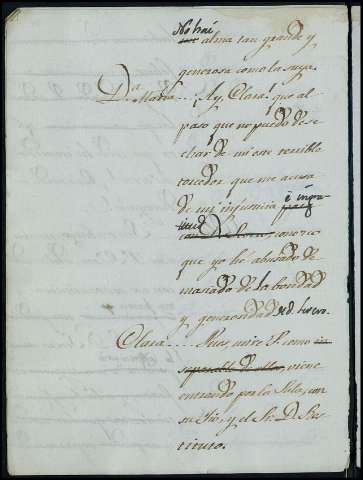 No hai
alma tan grande y
generosa como la suya.
Da. Maria... ¡Ay, Clara! que al
paso que no puedo de se
char de mi este terrible
torcedor que me acusa
de mi injusticia è ingra
titud conozco
que yo hé abusado de
masiado de la bondad
y generosidad de
Clara.... Pues, mire V. como
viene
entrando por la Sala, con
su tio, y el Sr. D. Res
tituto.